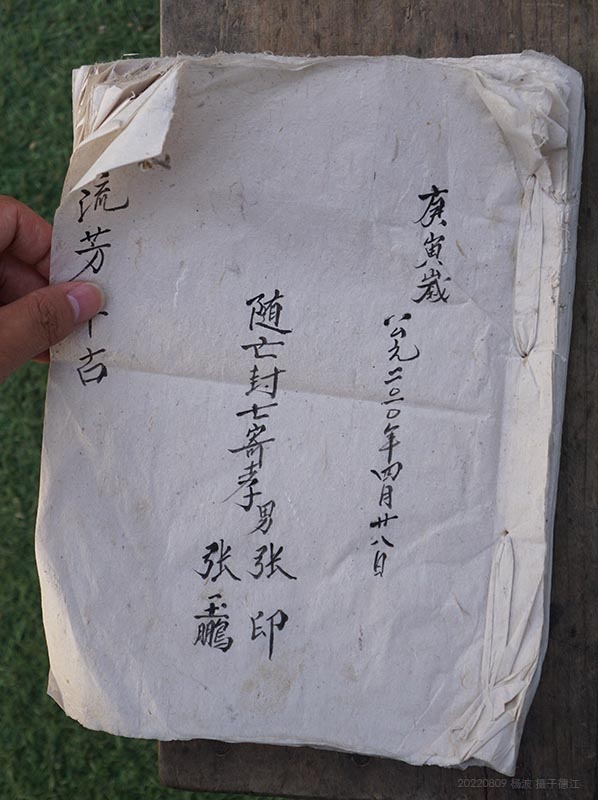 庚寅歲
公元二〇一〇年四月廿八日
随亡封七寄孝男张印
张玉鵬
流芳 古
20220809 杨波 摄于德江